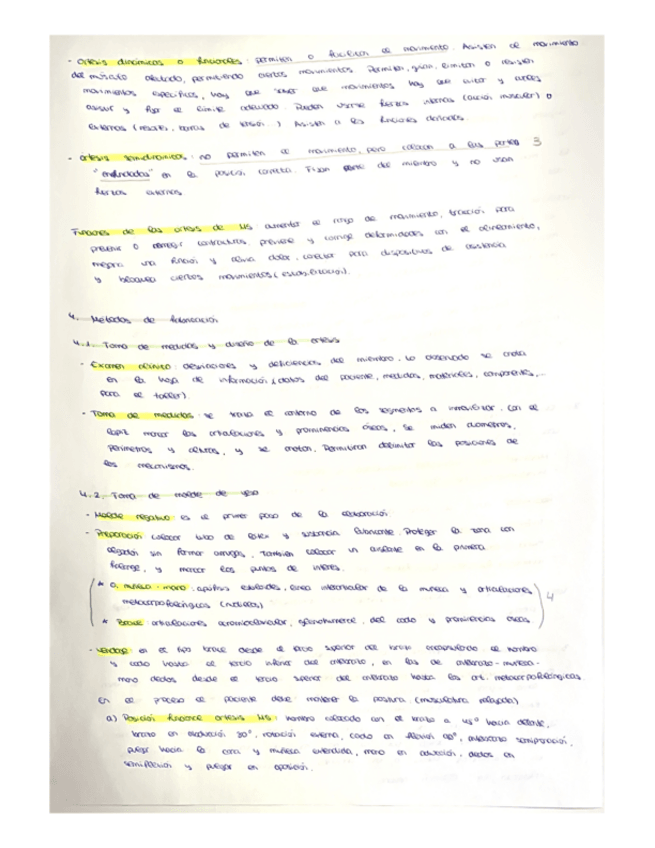 - Ortesis dinámicas o funcionales: permiten o facilitan el movimiento. Asisten el movimiento
del músculo afectado, permitiendo ciertos movimientos. Permiten, guían, limitan o resisten
movimientos específicos, hay que saber que movimientos hay que evitar y cuales
asistir y fijar el límite adecuado. Pueden usarse fuerzas internas (acción muscular) o
externas (resortes, bandas de tensión). Asisten a las funciones
- Ortesis semidinámicas: no permiten el movimiento, pero colocan a las partes 3
en la posición correcta. Fijan parte del miembro y no usan
fuerzas externas
Funciones de las ortesis de MS: aumentar el rango de movimiento, tracción para
prevenir o corregir contracturas, prevenir y corregir deformidades con el alineamiento,
mejora una función y alivia dolor, conector para dispositivos de asistencia
y bloquear ciertos movimientos (estabilización).
4. Métodos de fabricación
4.1. Toma de medidas y diseño de la ortesis
- Examen clínico: desviaciones y deficiencias del miembro. Lo observado se anota
en la hoja de información (datos del paciente, medidas, materiales, componentes,...
para el taller).
- Toma de medidas: se traza el contorno de los segmentos a inmovilizar. Con el
lápiz marcar las articulaciones y prominencias óseas. Se miden diámetros,
perímetros y alturas, y se anotan. Permitirán delimitar las posiciones de
los mecanismos.
4.2. Toma de molde de yeso
- Molde negativo: es el primer paso de la elaboración.
- Preparación: colocar tubo de látex y sustancia lubricante. Proteger la zona con
algodón sin formar arrugas. También colocar un aislante en la primera
falange, y marcar los puntos de interés.
* O. muñeca-mano: apófisis estiloides, línea interarticular de la muñeca y articulaciones
metacarpofalángicas (nudillos) 4
* Brazo: articulaciones acromioclavicular, glenohumeral, del codo y prominencias óseas.
- Vendaje: en el tipo brazo desde el tercio superior del brazo el hombro
y codo hasta el tercio inferior del antebrazo, en las de antebrazo-muñeca-
mano dedos desde el tercio superior del antebrazo hasta las art. metacarpofalángicas
en el proceso el paciente debe mantener la postura (musculatura relajada)
a) Posición funcional ortesis MS: hombro colocado con el brazo a 45° hacia delante,
brazo en abducción 30°, rotación externa, codo en flexión 90°, antebrazo semipronación,
pulgar hacia la cara y muñeca extendida, mano en aducción, dedos en
semiflexión y pulgar en oposición.